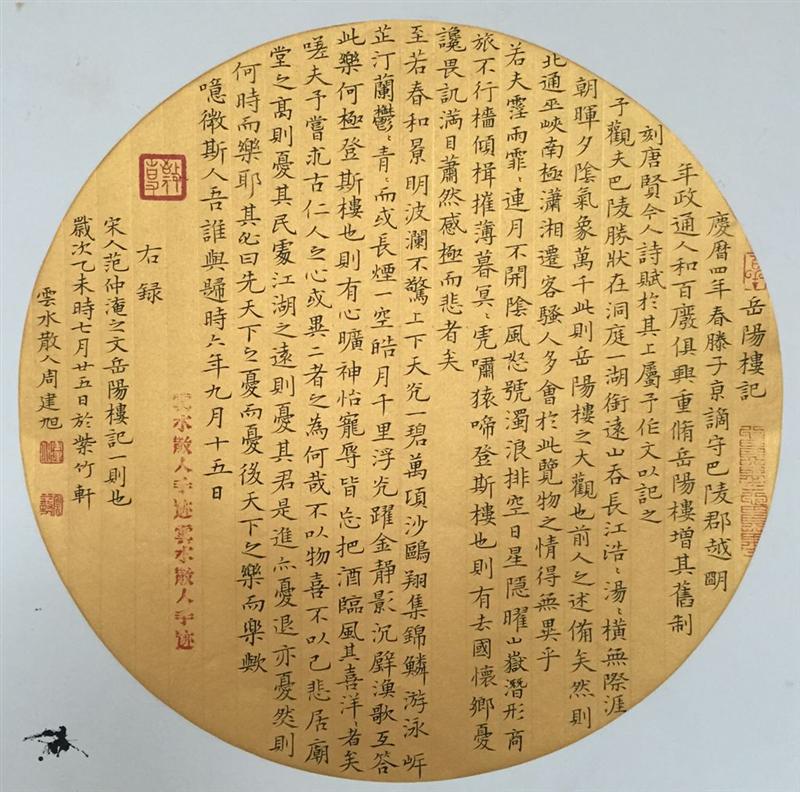 岳陽樓記
慶曆四年春滕子京謫守巴陵郡越明
年政通人和百廢俱興重脩岳陽樓增其舊制
刻唐賢今人詩賦於其上屬予作文以記之
予觀夫巴陵勝狀在洞庭一湖銜遠山吞長江浩〻湯〻橫無際涯
朝暉夕陰氣象萬千此則岳陽樓之大觀也前人之述備矣然則
北通巫峽南極瀟湘遷客騷人多會於此覽物之情得無異乎
若夫霪雨霏〻連月不開陰風怒號濁浪排空日星隱曜山嶽潛形商
旅不行檣傾楫摧薄暮冥〻虎嘯猿啼登斯樓也則有去國懷鄉憂
讒畏訊滿目蕭然感極而悲者矣
至若春和景明波瀾不驚上下天光一碧萬頃沙鷗翔集錦鱗游泳岸
芷汀蘭鬱〻青〻而或長煙一空皓月千里浮光躍金靜影沉璧漁歌互答
此樂何極登斯樓也則有心曠神怡寵辱皆忘把酒臨風其喜洋〻者矣
嗟夫予嘗求古仁人之心或異二者之為何哉不以物喜不以己悲居廟
堂之高則憂其民處江湖之遠則憂其君是進亦憂退亦憂然則
何時而樂耶其必曰先天下之憂而憂後天下之樂而樂歟
噫微斯人吾誰與歸時六年九月十五日
雲水散人手迹雲水散人手迹
右録
宋人范仲淹之文岳陽樓記一則也
歲次乙未時七月廿五日於紫竹軒
雲水散人周建旭